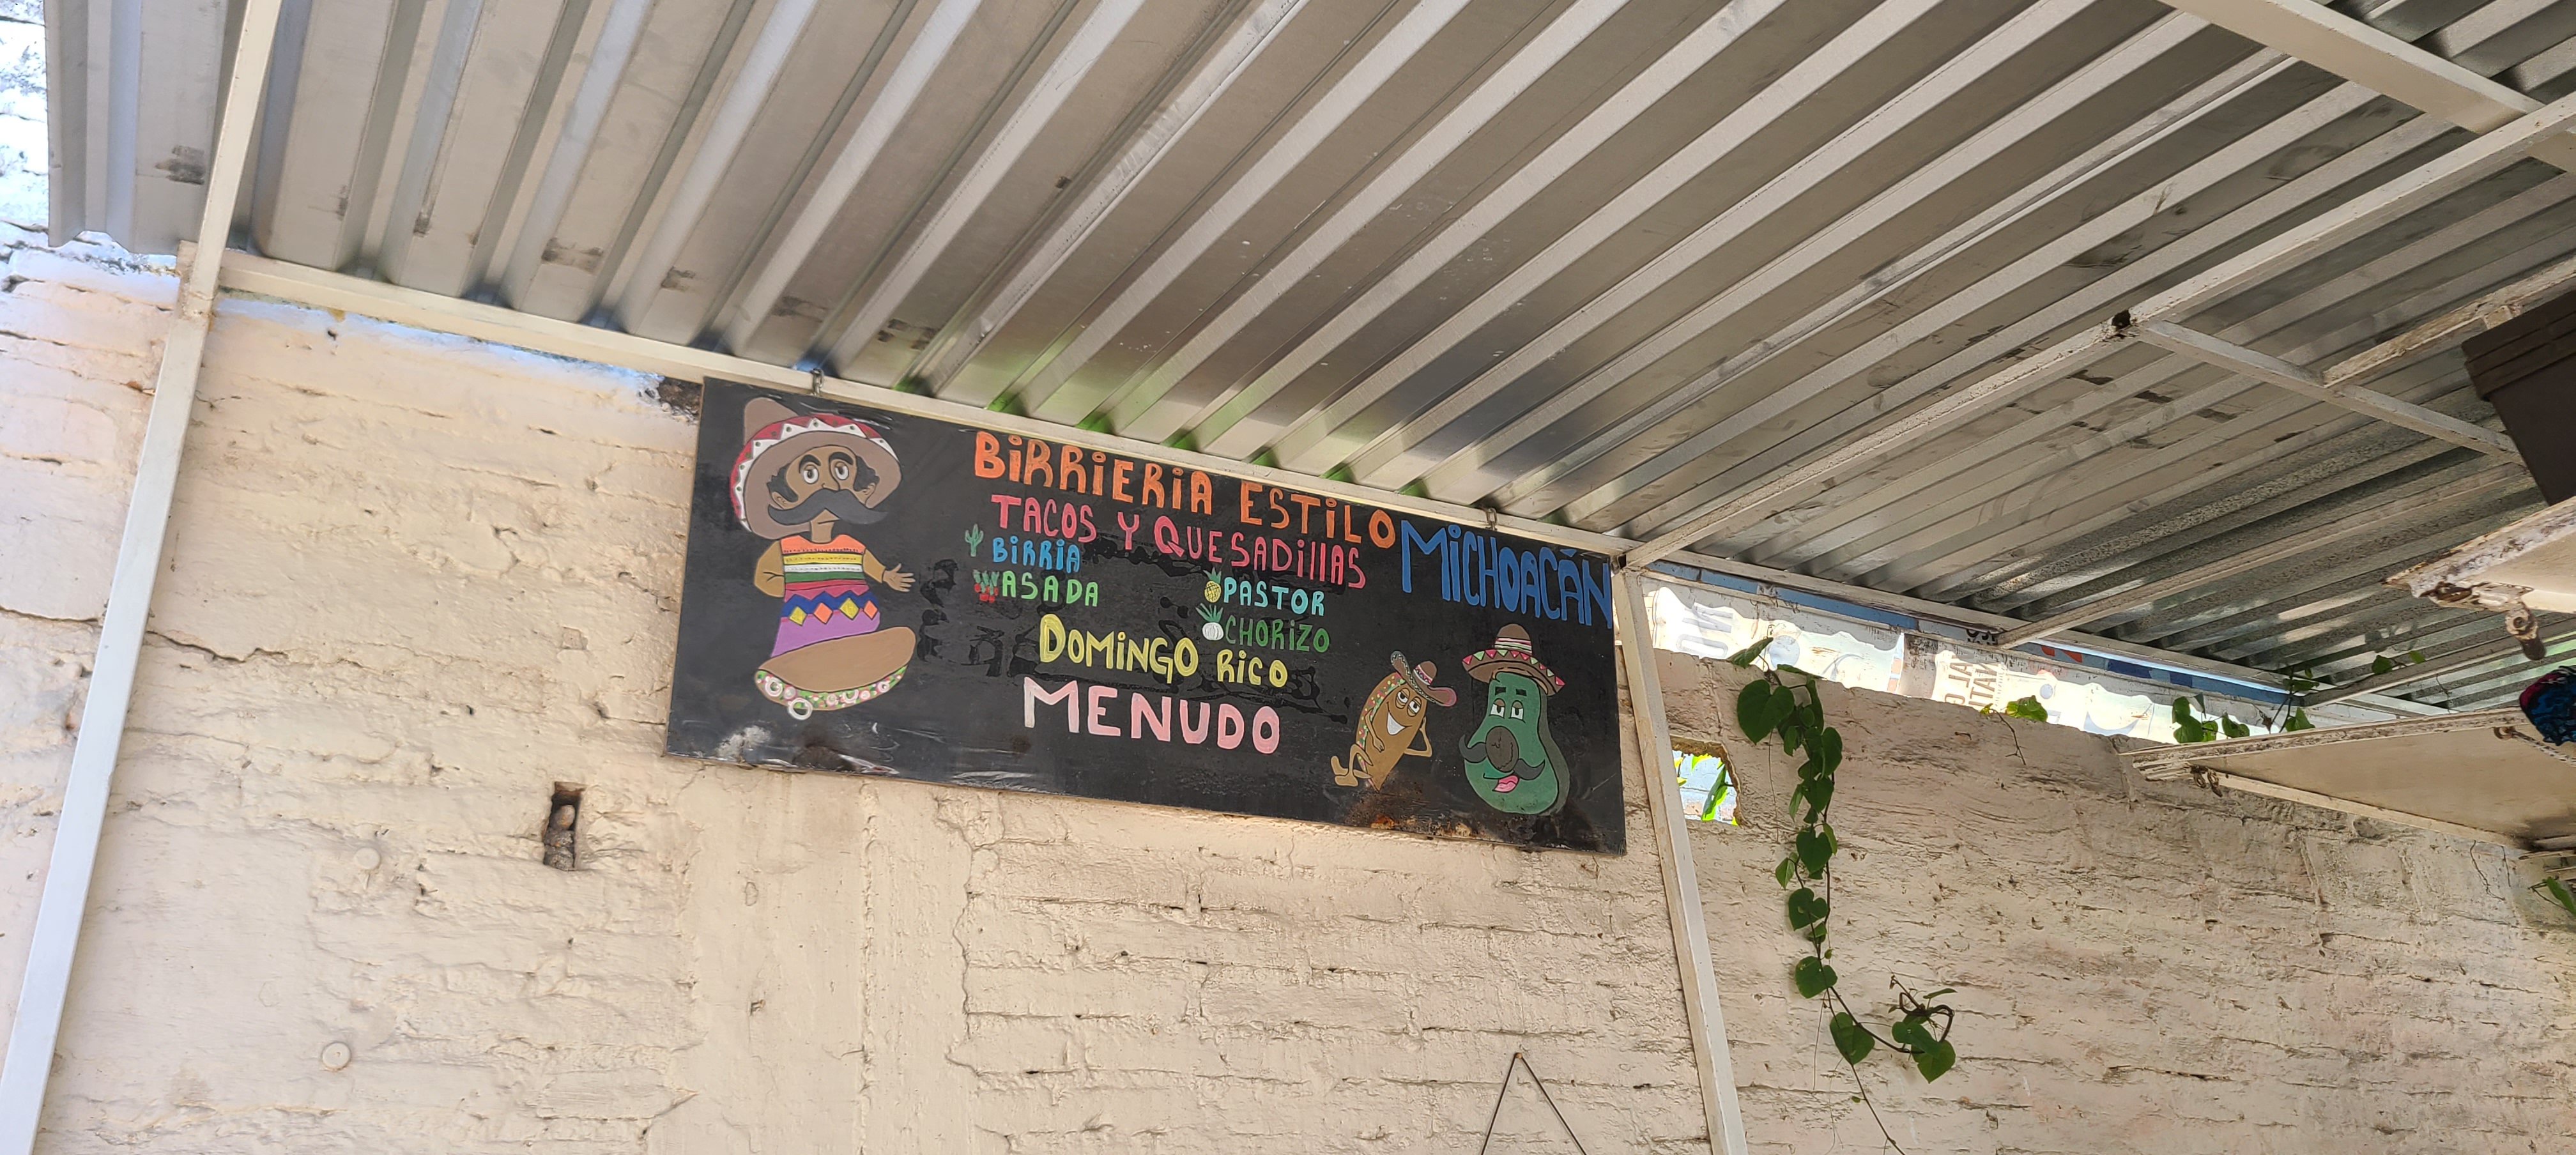 BiRRiERiA ESTiLO MiCHOACÁN
TACOS Y QUESADillAS
BiRRiA
ASADA
PASTOR
CHORiZO
DOMiNGO RiCO
MENUDO